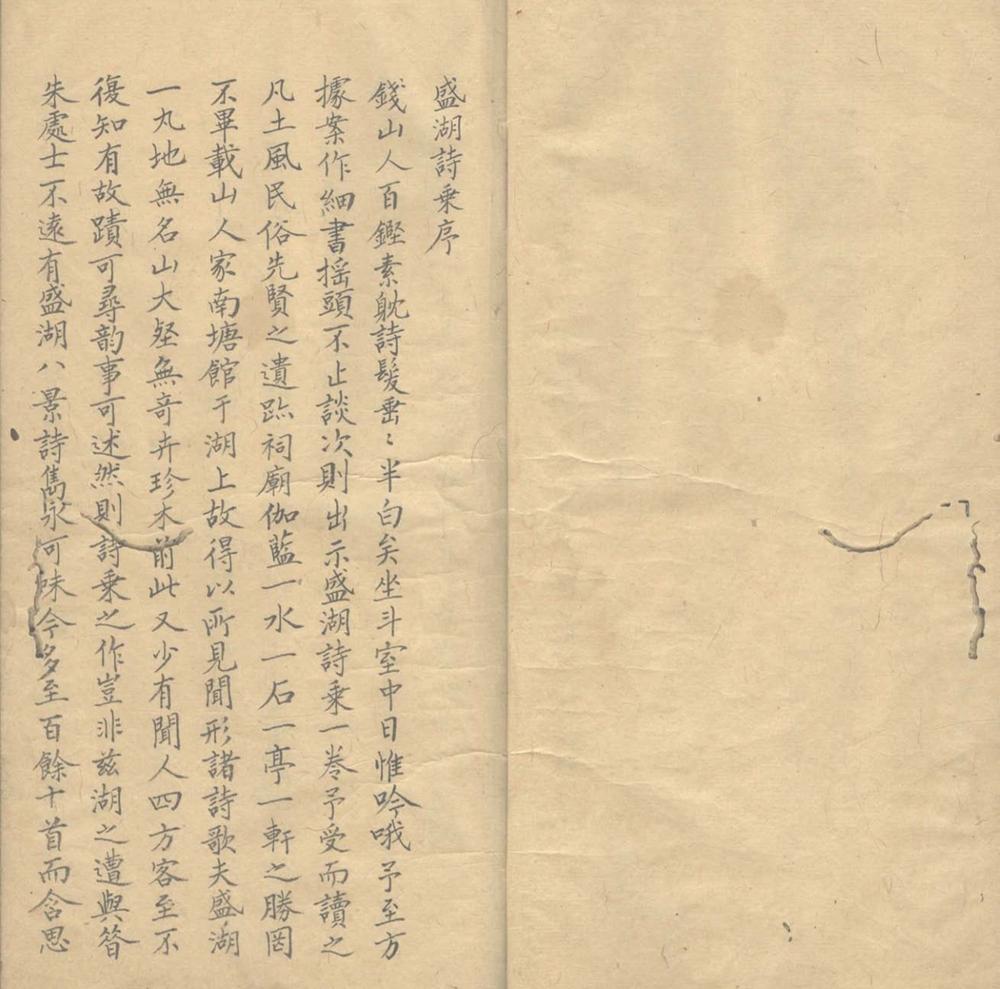 盛湖詩乘序
錢山人百鏗素躭詩髮垂〻半白矣坐斗室中日惟吟哦予至方
據案作細書揺頭不止談次則出示盛湖詩乘一卷予受而讀之
凡土風民俗先賢之遺跡祠廟伽藍一水一石一亭一軒之勝罔
不畢載山人家南塘館于湖上故得以所見聞形諸詩歌夫盛湖
一丸地無名山大壑無竒卉珍木前此又少有聞人四方客至不
復知有故蹟可尋韵事可述然則詩乘之作豈非兹湖之遭與昝
朱處士不遠有盛湖八景詩雋永可味今多至百餘十首而含思